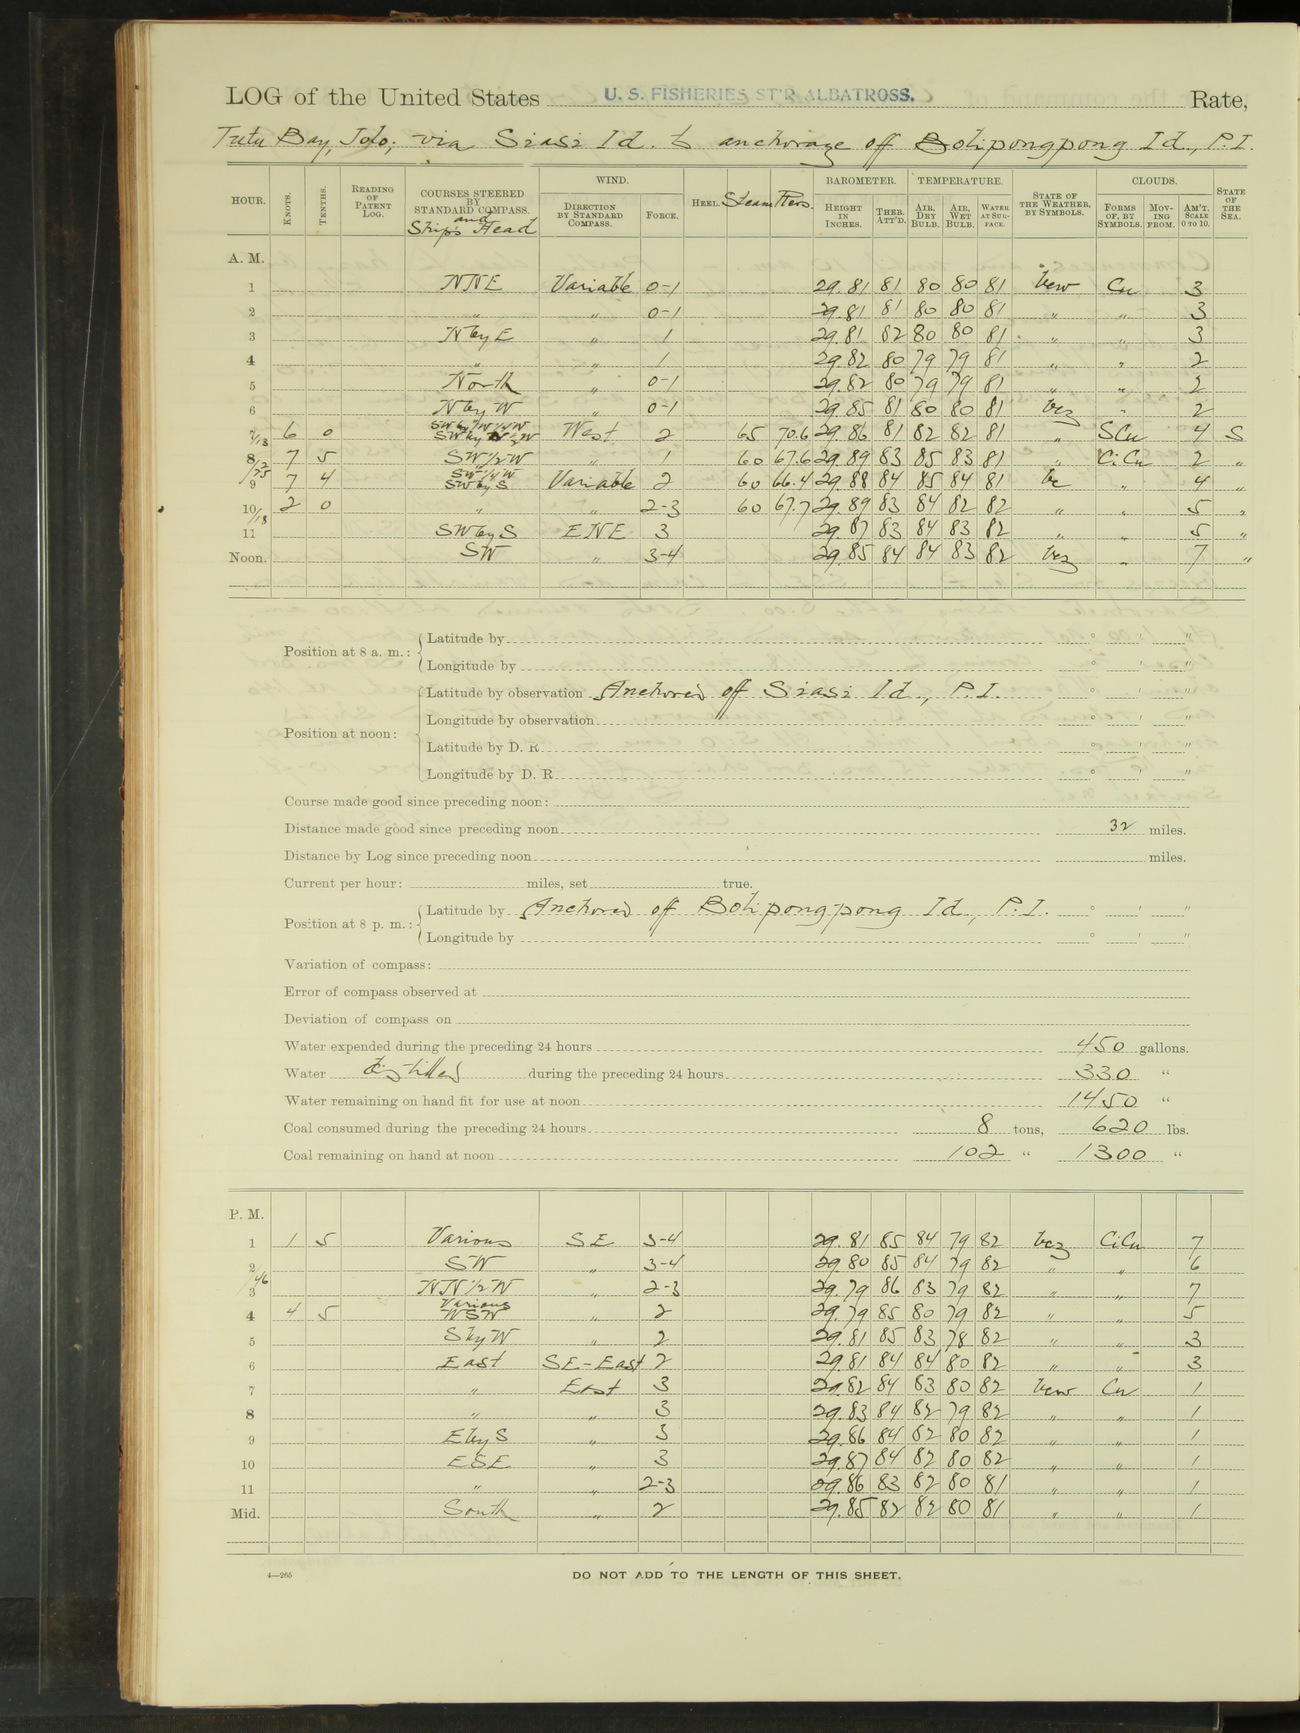 LOG of the United States U. S. FISHERIES ST'R ALBATROSS. Rate,
Tutu Bay, Jolo; via Siasi Id. to anchorage off Bolipongpong Id., P.I.
HOUR. KNOTS. TENTHS. READING OF PATENT LOG. COURSES STEERED BY STANDARD COMPASS. and Ship's Head WIND. DIRECTION BY STANDARD COMPASS. FORCE. HEEL. Steam Revs. BAROMETER. HEIGHT IN INCHES. THER. ATT'D. TEMPERATURE. AIR, DRY BULB. AIR, WET BULB. WATER AT SURFACE. STATE OF THE WEATHER, BY SYMBOLS. CLOUDS. FORMS OF, BY SYMBOLS. MOVING FROM. AM'T. SCALE 0 TO 10. STATE OF THE SEA.
A. M.
1 NNE Variable 0-1 29.81 81 80 80 81 bcw Cu 3
2 " " 0-1 29.81 81 80 80 81 " " 3
3 N by E " 1 29.81 82 80 80 81 " " 3
4 " " 1 29.82 80 79 79 81 " " 2
5 North " 0-1 29.82 80 79 79 81 " " 2
6 N by W " 0-1 29.85 81 80 80 81 bcz " 2
7/13 6 0 West 2 65 70.6 29.86 81 82 82 81 " SCu 4 S
8 7 5 SW 1/2 W " 1 60 67.6 29.89 83 85 83 81 " CiCu 2 "
9 7 4 SW 1/4 W SW by S Variable 2 60 66.4 29.88 84 85 84 81 bc " 4 "
10/13 2 0 " " 2-3 60 67.7 29.89 83 84 82 82 " " 5 "
11 SW by S ENE 3 29.87 83 84 83 82 " " 5 "
Noon. SW " 3-4 29.85 84 84 83 82 bcz " 7 "
Position at 8 a. m.: Latitude by ° ' "
Longitude by ° ' "
Position at noon: Latitude by observation Anchored off Siasi Id., P.I. ° ' "
Longitude by observation ° ' "
Latitude by D. R. ° ' "
Longitude by D. R. ° ' "
Course made good since preceding noon:
Distance made good since preceding noon 32 miles.
Distance by Log since preceding noon miles.
Current per hour: miles, set true.
Position at 8 p. m.: Latitude by Anchored off Bolipongpong Id., P.I. ° ' "
Longitude by ° ' "
Variation of compass:
Error of compass observed at
Deviation of compass on
Water expended during the preceding 24 hours 450 gallons.
Water distilled during the preceding 24 hours 330 "
Water remaining on hand fit for use at noon 1450 "
Coal consumed during the preceding 24 hours 8 tons, 620 lbs.
Coal remaining on hand at noon 102 " 1300 "
P. M.
1 1 5 Various SE 3-4 29.81 85 84 79 82 bcz CiCu 7
2 SW " 3-4 29.80 85 84 79 82 " " 6
3 " 2-3 29.79 86 83 79 82 " " 7
4 4 5 Various WSW " 2 29.79 85 80 79 82 " " 5
5 S by W " 2 29.81 85 83 78 82 " " 3
6 East SE-East 2 29.81 84 84 80 82 " " 3
7 " East 3 29.82 84 83 80 82 bcw Cu 1
8 " " 3 29.83 84 82 79 82 " " 1
9 E by S " 3 29.86 84 82 80 82 " " 1
10 ESE " 3 29.87 84 82 80 82 " " 1
11 " " 2-3 29.86 83 82 80 81 " " 1
Mid. South " 2 29.85 82 82 80 81 " " 1
4—265 DO NOT ADD TO THE LENGTH OF THIS SHEET.